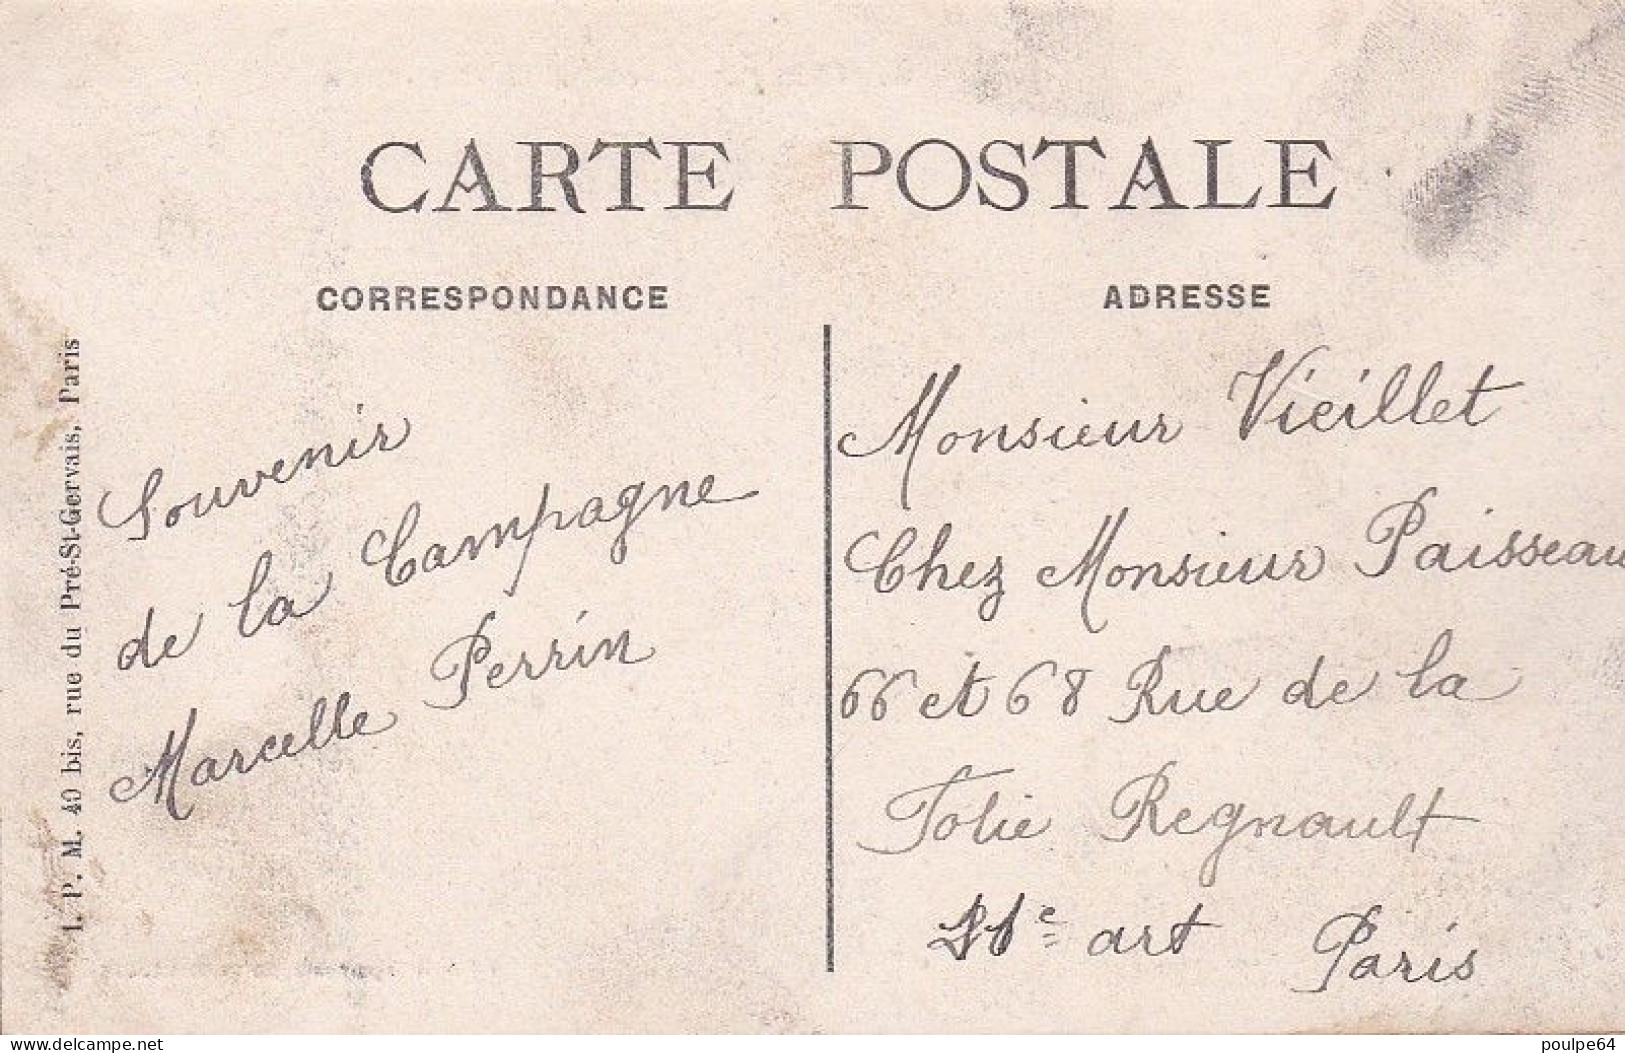 CARTE POSTALE
CORRESPONDANCE
ADRESSE
I. P. M. 40 bis, rue du Pré-St-Gervais, Paris
Souvenir
de la Campagne
Marcelle Perrin
Monsieur Vieillet
Chez Monsieur Paisseau
66 et 68 Rue de la
Folie Regnault
art Paris
www.delcampe.net
poulpe64